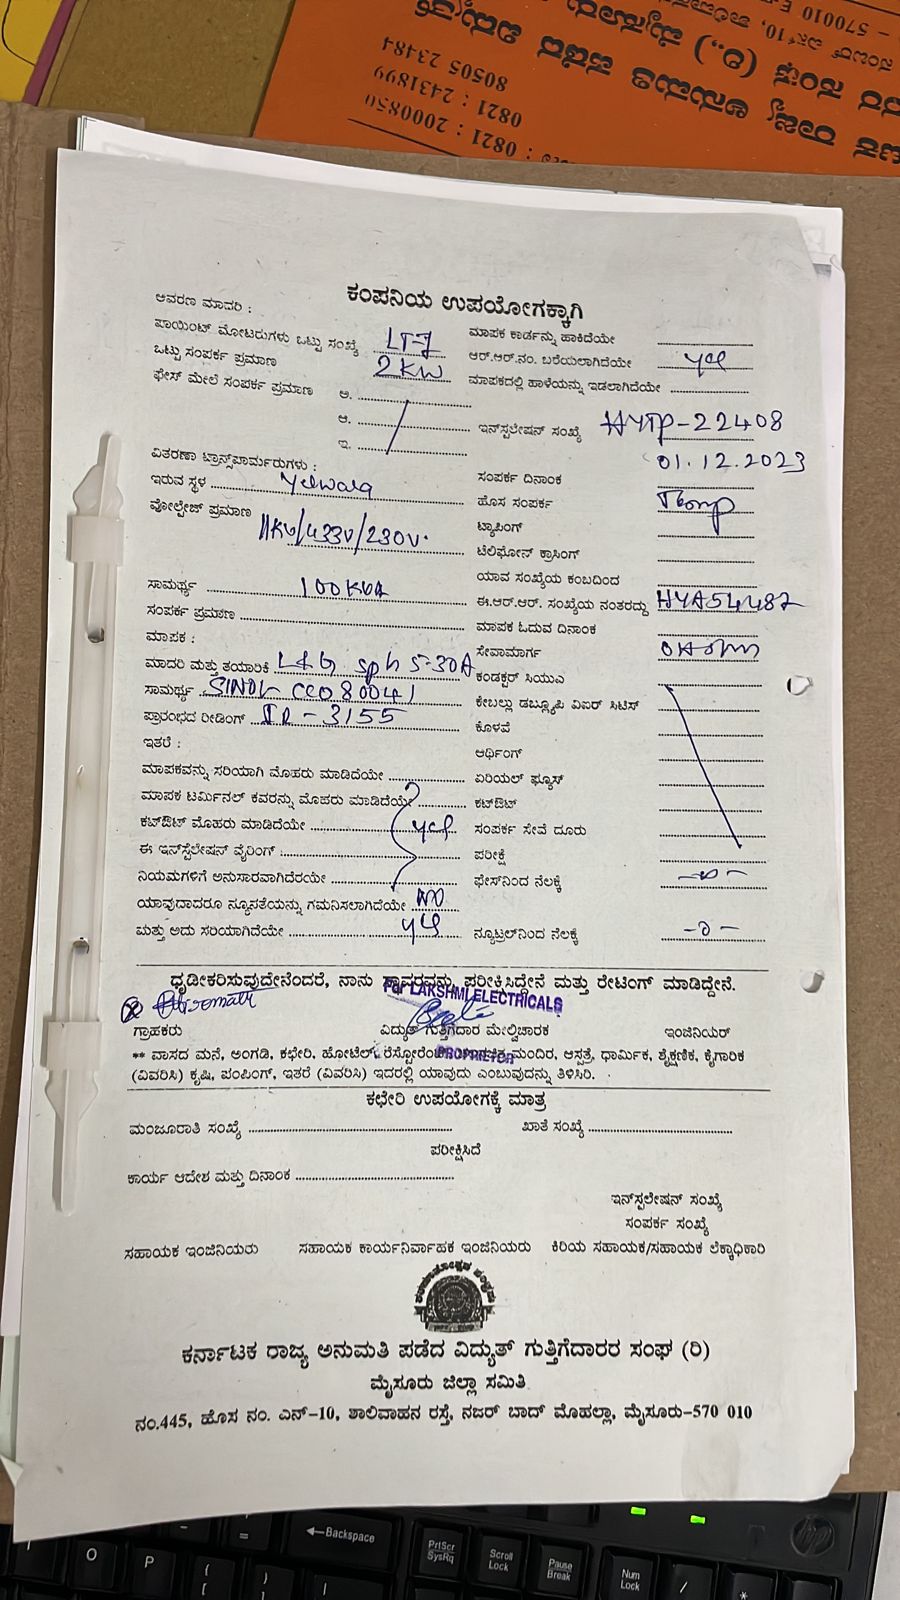 570010
0821 : 2000850
0821 : 2431899
80505 23484
ಕಂಪನಿಯ ಉಪಯೋಗಕ್ಕಾಗಿ
ಆವರಣ ಮಾದರಿ :
ಮಾಪಕ ಕಾರ್ಡನ್ನು ಹಾಕಿದೆಯೇ
ಪಾಯಿಂಟ್ ಮೋಟರುಗಳು ಒಟ್ಟು ಸಂಖ್ಯೆ LT-7
ಆರ್.ಆರ್.ನಂ. ಬರೆಯಲಾಗಿದೆಯೇ yes
ಒಟ್ಟು ಸಂಪರ್ಕ ಪ್ರಮಾಣ 2KW
ಮಾಪಕದಲ್ಲಿ ಹಾಳೆಯನ್ನು ಇಡಲಾಗಿದೆಯೇ
ಫೇಸ್ ಮೇಲೆ ಸಂಪರ್ಕ ಪ್ರಮಾಣ ಅ.
ಆ.
ಇನ್‌ಸ್ಟಲೇಷನ್ ಸಂಖ್ಯೆ HYTP-22408
ಇ.
01.12.2023
ವಿತರಣಾ ಟ್ರಾನ್ಸ್‌ಪಾರ್ಮರುಗಳು :
ಸಂಪರ್ಕ ದಿನಾಂಕ
ಇರುವ ಸ್ಥಳ Yelwala
ಹೊಸ ಸಂಪರ್ಕ Temp
ವೋಲ್ಟೇಜ್ ಪ್ರಮಾಣ 11KV/433V/230V.
ಟ್ಯಾಪಿಂಗ್
ಟೆಲಿಫೋನ್ ಕ್ರಾಸಿಂಗ್
ಯಾವ ಸಂಖ್ಯೆಯ ಕಂಬದಿಂದ
ಸಾಮರ್ಥ್ಯ 100KVA
ಈ.ಆರ್.ಆರ್. ಸಂಖ್ಯೆಯ ನಂತರದ್ದು HYA54487
ಸಂಪರ್ಕ ಪ್ರಮಾಣ
ಮಾಪಕ ಓದುವ ದಿನಾಂಕ
ಮಾಪಕ :
ಸೇವಾಮಾರ್ಗ
ಮಾದರಿ ಮತ್ತು ತಯಾರಿಕೆ L&G sph 5-30A
ಕಂಡಕ್ಟರ್ ಸಿಯುವಿ
ಸಾಮರ್ಥ್ಯ
ಕೇಬಲ್ಲು ಡಬ್ಲ್ಯೂಪಿ ವಿಐರ್ ಸಿಟಿಸ್
ಪ್ರಾರಂಭದ ರೀಡಿಂಗ್ IR-3155
ಕೊಳವೆ
ಇತರೆ :
ಆರ್ಥಿಂಗ್
ಮಾಪಕವನ್ನು ಸರಿಯಾಗಿ ಮೊಹರು ಮಾಡಿದೆಯೇ
ಏರಿಯಲ್ ಫ್ಯೂಸ್
ಮಾಪಕ ಟರ್ಮಿನಲ್ ಕವರನ್ನು ಮೊಹರು ಮಾಡಿದೆಯೇ
ಕಟ್‌ಔಟ್
ಕಟ್‌ಔಟ್ ಮೊಹರು ಮಾಡಿದೆಯೇ yes
ಸಂಪರ್ಕ ಸೇವೆ ದೂರು
ಈ ಇನ್‌ಸ್ಟಲೇಷನ್ ವೈರಿಂಗ್ :
ಪರೀಕ್ಷೆ
ನಿಯಮಗಳಿಗೆ ಅನುಸಾರವಾಗಿದೆರಯೇ
ಫೇಸ್‌ನಿಂದ ನೆಲಕ್ಕೆ
ಯಾವುದಾದರೂ ನ್ಯೂನತೆಯನ್ನು ಗಮನಿಸಲಾಗಿದೆಯೇ NO
ಮತ್ತು ಅದು ಸರಿಯಾಗಿದೆಯೇ yes
ನ್ಯೂಟ್ರಲ್‌ನಿಂದ ನೆಲಕ್ಕೆ
ಧೃಡೀಕರಿಸುವುದೇನೆಂದರೆ, ನಾನು ಸ್ಥಾವರವನ್ನು ಪರೀಕ್ಷಿಸಿದ್ದೇನೆ ಮತ್ತು ರೇಟಿಂಗ್ ಮಾಡಿದ್ದೇನೆ.
For LAKSHMI ELECTRICALS
ಗ್ರಾಹಕರು ವಿದ್ಯುತ್ ಗುತ್ತಿಗೆದಾರ ಮೇಲ್ವಿಚಾರಕ ಇಂಜಿನಿಯರ್
PROPRIETOR
** ವಾಸದ ಮನೆ, ಅಂಗಡಿ, ಕಛೇರಿ, ಹೋಟೆಲ್, ರೆಸ್ಟೋರೆಂಟ್, ಮಂದಿರ, ಆಸ್ಪತ್ರೆ, ಧಾರ್ಮಿಕ, ಶೈಕ್ಷಣಿಕ, ಕೈಗಾರಿಕ
(ವಿವರಿಸಿ) ಕೃಷಿ, ಪಂಪಿಂಗ್, ಇತರೆ (ವಿವರಿಸಿ) ಇದರಲ್ಲಿ ಯಾವುದು ಎಂಬುವುದನ್ನು ತಿಳಿಸಿರಿ.
ಕಛೇರಿ ಉಪಯೋಗಕ್ಕೆ ಮಾತ್ರ
ಮಂಜೂರಾತಿ ಸಂಖ್ಯೆ ಖಾತೆ ಸಂಖ್ಯೆ
ಪರೀಕ್ಷಿಸಿದೆ
ಕಾರ್ಯ ಆದೇಶ ಮತ್ತು ದಿನಾಂಕ
ಇನ್‌ಸ್ಟಲೇಷನ್ ಸಂಖ್ಯೆ
ಸಂಪರ್ಕ ಸಂಖ್ಯೆ
ಸಹಾಯಕ ಇಂಜಿನಿಯರು ಸಹಾಯಕ ಕಾರ್ಯನಿರ್ವಾಹಕ ಇಂಜಿನಿಯರು ಕಿರಿಯ ಸಹಾಯಕ/ಸಹಾಯಕ ಲೆಕ್ಕಾಧಿಕಾರಿ
ಕರ್ನಾಟಕ ರಾಜ್ಯ ಅನುಮತಿ ಪಡೆದ ವಿದ್ಯುತ್ ಗುತ್ತಿಗೆದಾರರ ಸಂಘ (ರಿ)
ಮೈಸೂರು ಜಿಲ್ಲಾ ಸಮಿತಿ
ನಂ.445, ಹೊಸ ನಂ. ಎನ್-10, ಶಾಲಿವಾಹನ ರಸ್ತೆ, ನಜರ್ ಬಾದ್ ಮೊಹಲ್ಲಾ, ಮೈಸೂರು-570 010
Backspace
PrtScr
SysRq
Scroll
Lock
Pause
Break
Num
Lock
O
P